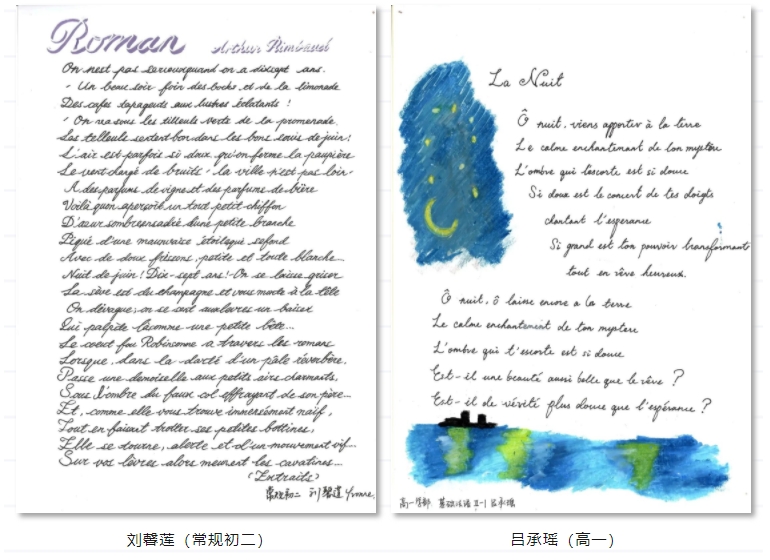 Roman Arthur Rimbaud
On n'est pas serieux quand on a dixsept ans.
- Un beau soir foin des bocks et de la limonade
Des cafes tapageurs aux lustres éclatants !
- On va sous les tilleuls verts de la promenade.
Les tilleuls sentent bon dans les bons soirs de juin !
L'air est parfois si doux qu'on ferme la paupière
Le vent chargé de bruits - la ville n'est pas loin -
A des parfums de vigne et des parfums de bière
Voilà qu'on aperçoit un tout petit chiffon
D'azur sombre encadré d'une petite branche
Piqué d'une mauvaise étoile qui se fond
Avec de doux frissons, petite et toute blanche...
Nuit de juin ! Dix-sept ans ! On se laisse griser
La sève est du champagne et vous monte à la tête
On divague, on se sent aux lèvres un baiser
Qui palpite là comme une petite bête...
Le coeur fou Robinsonne à travers les romans
Lorsque, dans la clarté d'un pâle réverbère.
Passe une demoiselle aux petits airs charmants,
Sous l'ombre du faux col effrayant de son père...
Et, comme elle vous trouve immensément naïf,
Tout en faisant trotter ses petites bottines,
Elle se tourne, alerte et d'un mouvement vif...
Sur vos lèvres alors meurent les cavatines...
(Extraits)
常规初二 刘馨莲 Yvonne.
La Nuit
Ô nuit, viens apporter à la terre
Le calme enchantement de ton mystère
L'ombre qui t'escorte est si douce
Si doux est le concert de tes doigts
chantant l'esperance
Si grand est ton pouvoir transformant
tout en rêve heureux.
Ô nuit, ô laisse encore a la terre
Le calme enchantement de ton mystere
L'ombre qui t'escorte est si douce
Est-il une beauté aussi belle que le rêve ?
Est-il de vérité plus douce que l'espérance ?
高一 吕承瑶
刘馨莲（常规初二）
吕承瑶（高一）